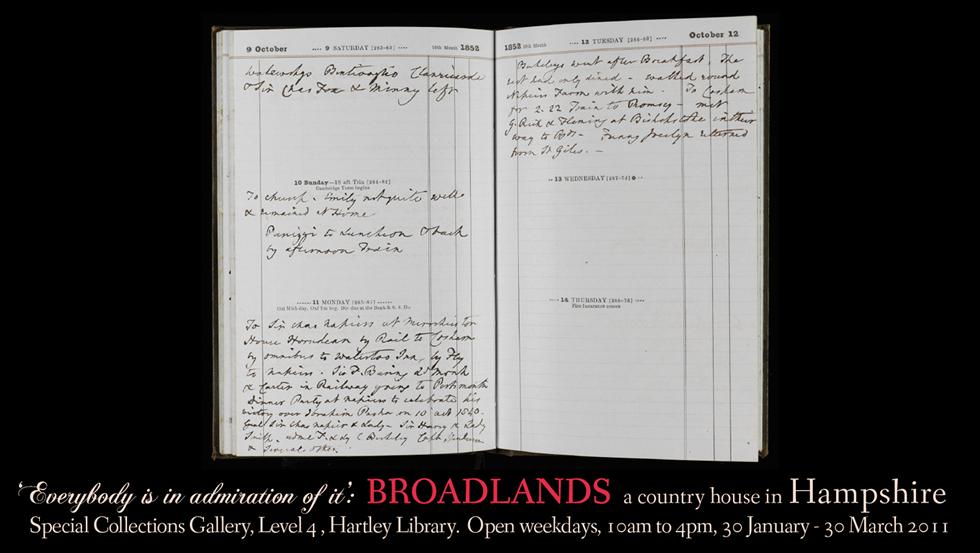 9 October .... 9 SATURDAY [283-83] .... 10th Month 1852
& Sir Chas Fox & Minny left
10 Sunday—18 aft Trin [284-82]
Cambridge Term begins
To church. Emily not quite well
& remained at Home
Panizzi to Luncheon & back
by afternoon Train
11 MONDAY [285-81]
To Sir Chas Napiers at
House Horndean by Rail to Cosham
by omnibus to Waterloo Inn, by Fly
to Napiers. Sir F. Baring Ld Monk
& Carter in Railway going to Portsmouth
Dinner Party at Napiers to celebrate his
victory over Ibrahim Pasha on 10 Oct 1840.
Sir Chas Napier & Lady - Sir Harry & Lady
Smith.
& several others.
1852 10th Month .... 12 TUESDAY [286-80] .... October 12
went after Breakfast. The
rest had only dined - walked round
Napiers Farm with him. To Cosham
for 2.22 Train to Romsey - met
& Fleming at Bishopstoke in their
way to - Fanny Jocelyn returned
from St Giles. -
13 WEDNESDAY [287-79]
14 THURSDAY [288-78]
Fire Insurance ceases
‘Everybody is in admiration of it’: BROADLANDS a country house in Hampshire
Special Collections Gallery, Level 4, Hartley Library. Open weekdays, 10am to 4pm, 30 January - 30 March 2011